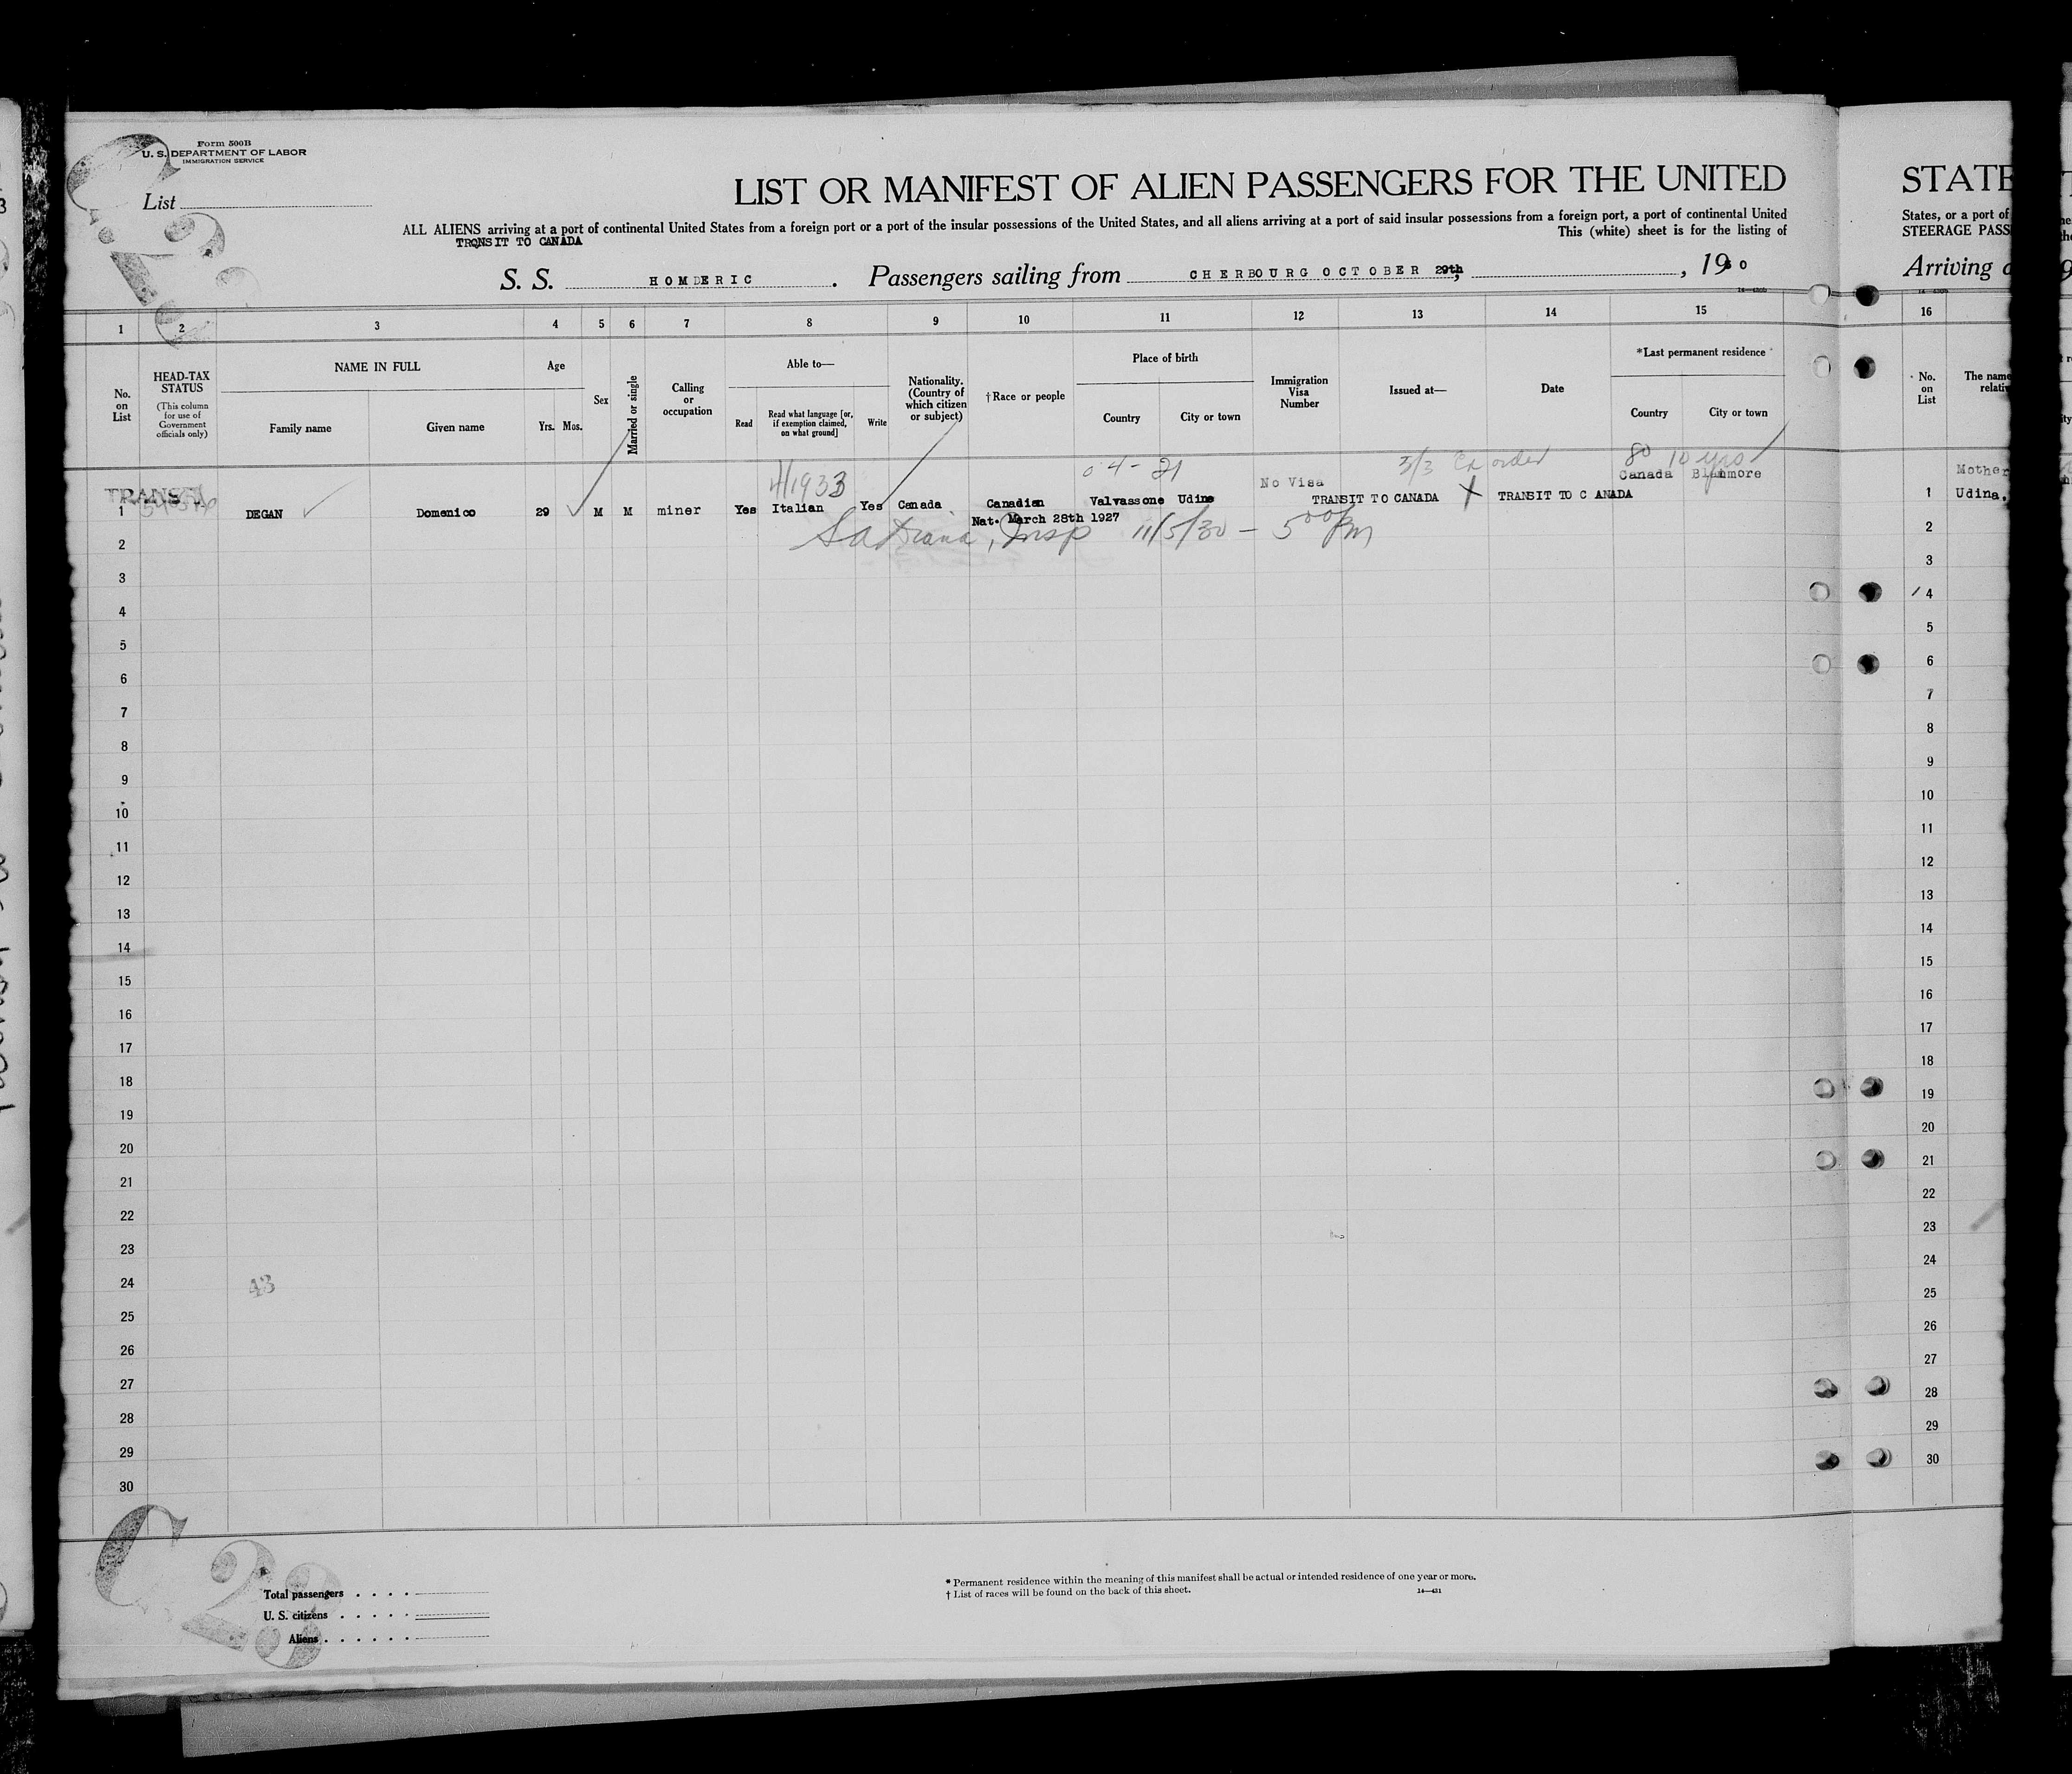 Form 500B
U. S. DEPARTMENT OF LABOR
IMMIGRATION SERVICE
List
LIST OR MANIFEST OF ALIEN PASSENGERS FOR THE UNITED
STATE
ALL ALIENS arriving at a port of continental United States from a foreign port or a port of the insular possessions of the United States, and all aliens arriving at a port of said insular possessions from a foreign port, a port of continental United
States, or a port of
TRQNSIT TO CANADA
This (white) sheet is for the listing of
STEERAGE PASS
S. S. HOMDERIC . Passengers sailing from CHERBOURG OCTOBER 29th, , 1930
Arriving
1 2 3 4 5 6 7 8 9 10 11 12 13 14 15 16
No. on List
HEAD-TAX STATUS
(This column for use of Government officials only)
NAME IN FULL
Family name
Given name
Age
Yrs. Mos.
Sex
Married or single
Calling or occupation
Able to—
Read
Read what language [or, if exemption claimed, on what ground]
Write
Nationality. (Country of which citizen or subject)
†Race or people
Place of birth
Country
City or town
Immigration Visa Number
Issued at—
Date
*Last permanent residence
Country
City or town
No. on List
The name
relativ
4/1933
04-21
3/3 Ex order
80 10 yrs
TRANSIT
1 DEGAN Domenico 29 M M miner Yes Italian Yes Canada Canadian Valvassone Udine No Visa TRANSIT TO CANADA X TRANSIT TO C ANADA Canada
Nat. March 28th 1927
Insp 11/5/30 - 5 00 pm
1 Mother
Udina,
2 2
3 3
4 4
5 5
6 6
7 7
8 8
9 9
10 10
11 11
12 12
13 13
14 14
15 15
16 16
17 17
18 18
19 19
20 20
21 21
22 22
23 23
24 43 24
25 25
26 26
27 27
28 28
29 29
30 30
C 23
Total passengers . . . .
U. S. citizens . . . . .
Aliens . . . . . .
* Permanent residence within the meaning of this manifest shall be actual or intended residence of one year or more.
† List of races will be found on the back of this sheet.
14—431